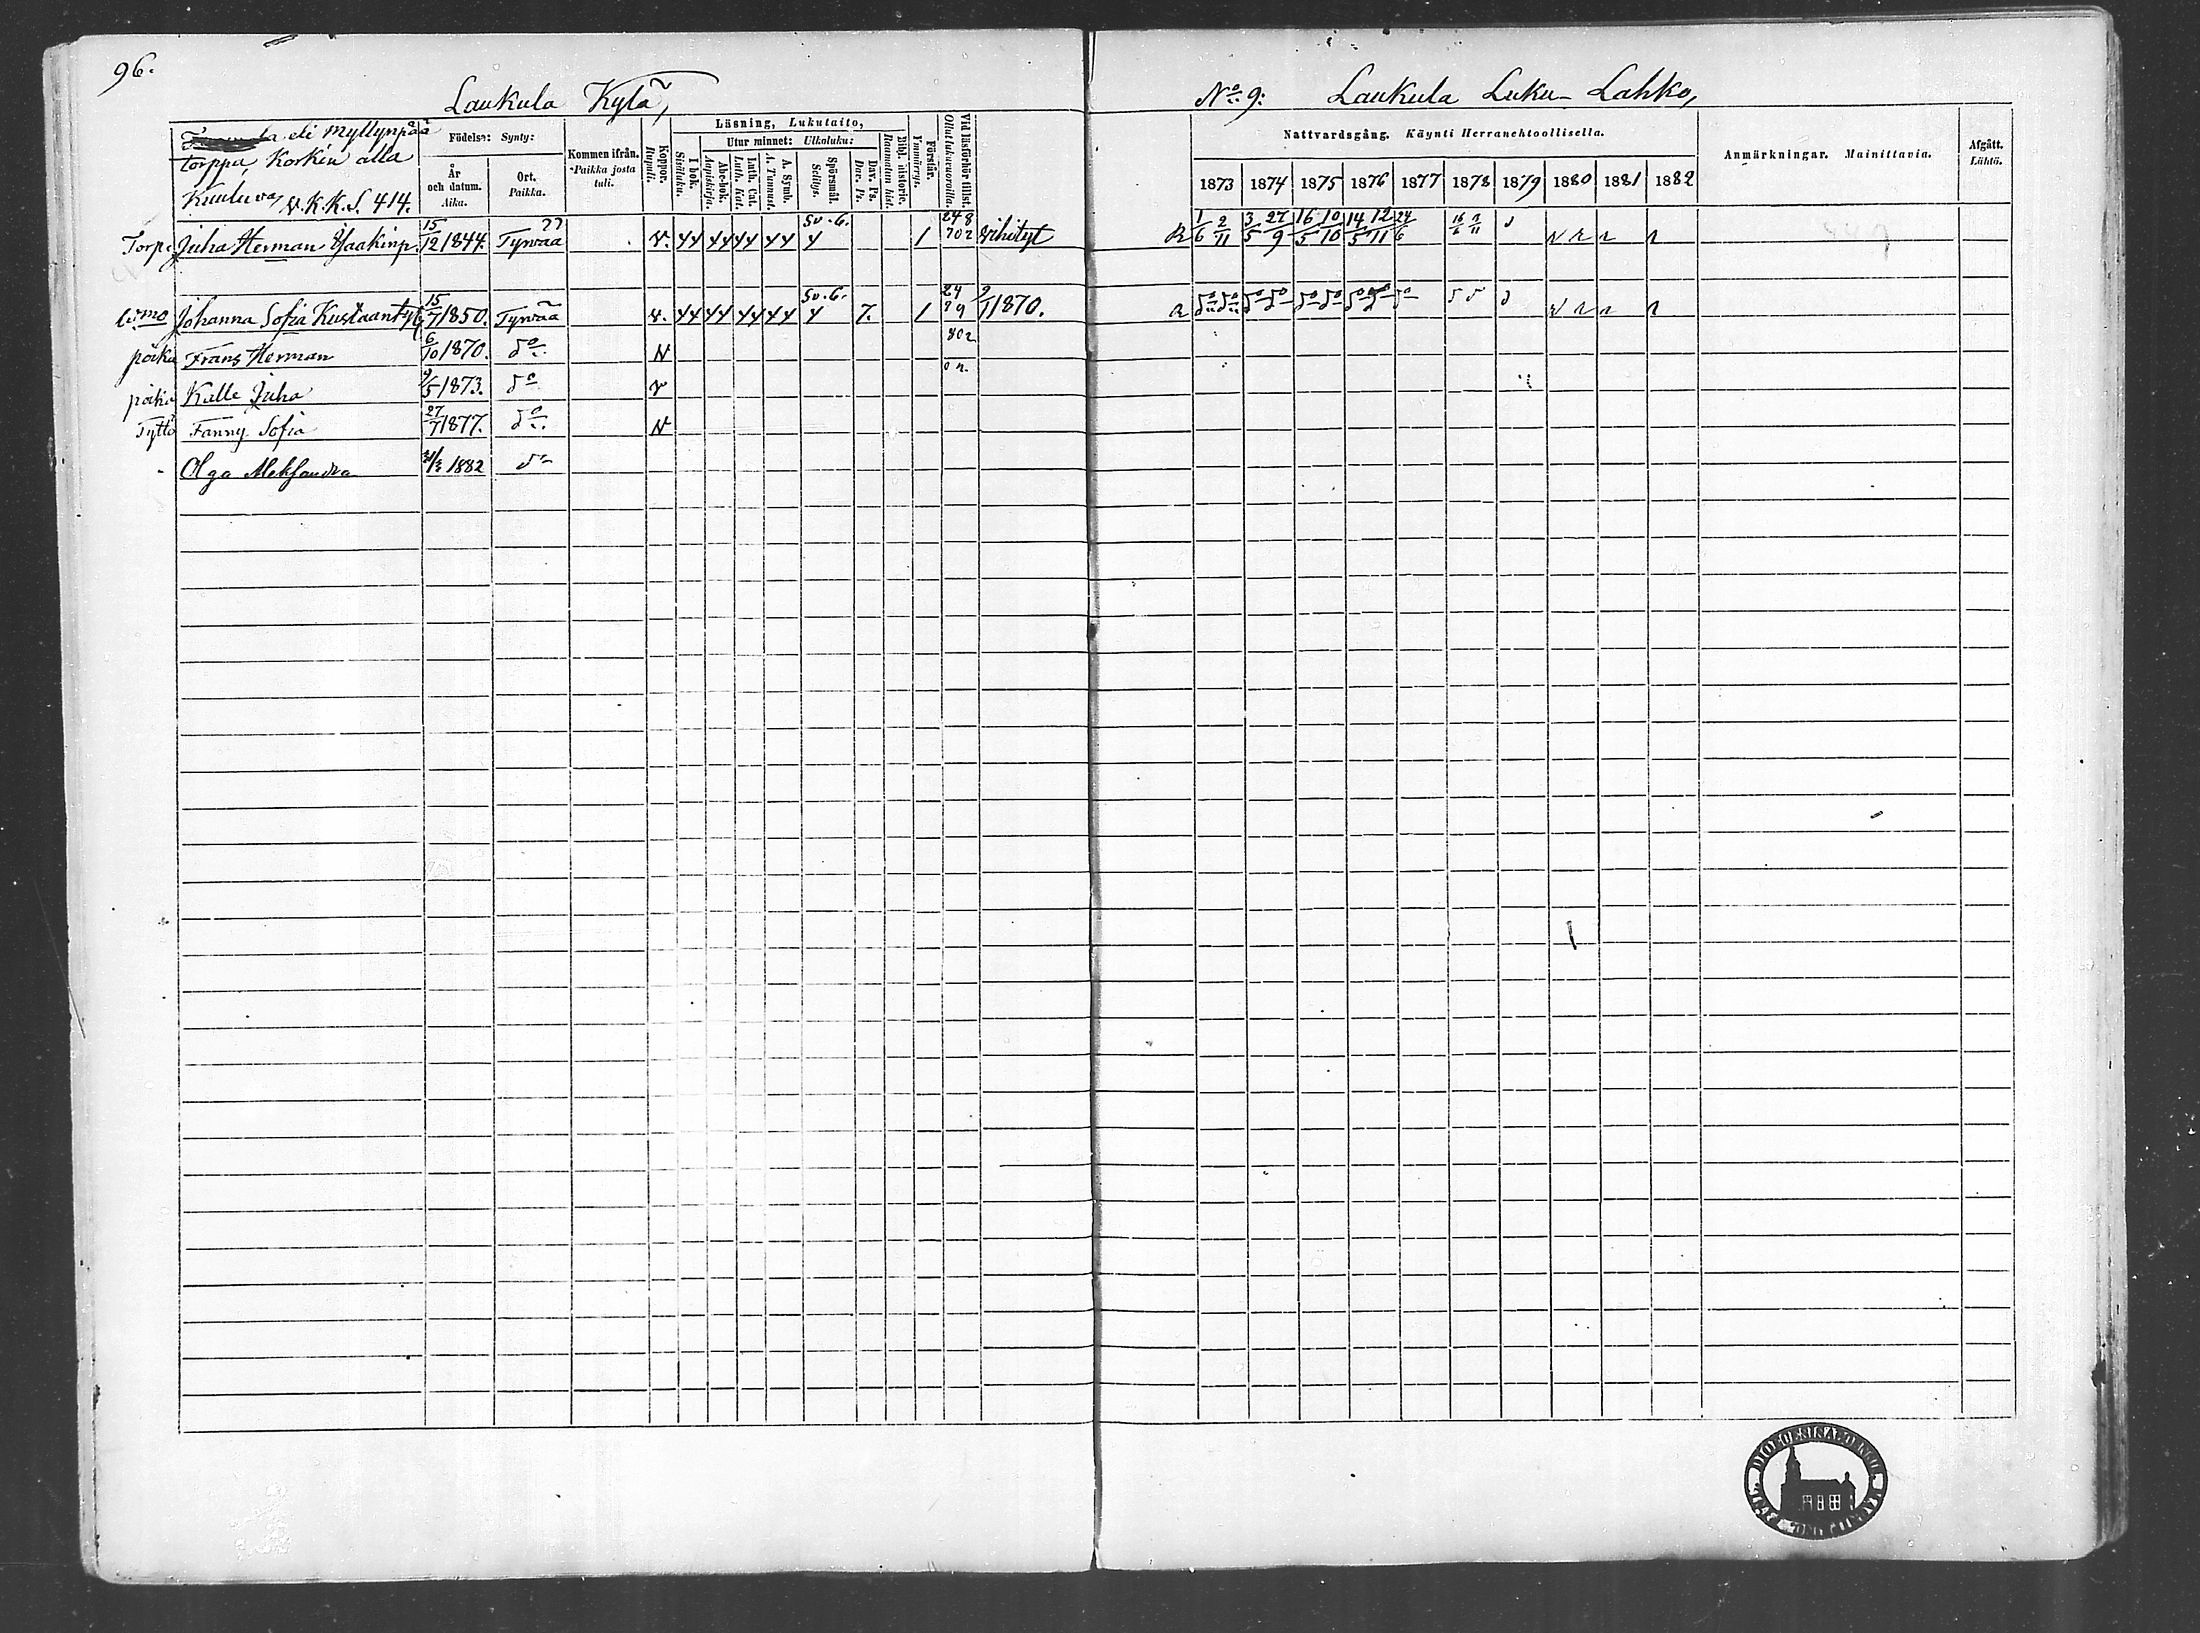 96.
Laukula Kylä,
No 9: Laukula Luku- Lahko,
eli Myllynpää
torppa, Korkin alla
Kuuluva, V.K.K.S. 414.
Födelse: Synty:
År och datum. Aika.
Ort. Paikka.
Kommen ifrån. Paikka josta tuli.
Koppor. Rupuli.
Läsning, Lukutaito,
I bok. Sisäluku.
Utur minnet: Ulkoluku:
Abc-bok. Aapiskirja.
Luth. Cat. Luth. Kat.
A. Symb. A. Tunnust.
Spörsmål. Selitys.
Dav. Ps. Dav. Ps.
Bibl. historie. Raamatun hist.
Förstår. Ymmärrys.
Vid läsförhör tillst. Ollut lukuvuoroilla.
Nattvardsgång. Käynti Herranehtoollisella.
1873 1874 1875 1876 1877 1878 1879 1880 1881 1882
Anmärkningar. Mainittavia.
Afgått. Lähtö.
Torp. Juha Herman Isaakinp. 15/12 1844. Tyrvää v. 44 44 44 44 Sv. 6. 4 1 248 702 Vihityt R 1/6 2/11 3/5 27/9 16/5 10/10 14/5 12/11 24/6
Johanna Sofia Kustaant. 15/7 1850. Tyrvää v. 44 44 44 44 Sv. 6. 4 7. 1 24 79 2/1 1870. R do do do do do do do do do
poika Frans Herman 6/10 1870. do v
poika Kalle Juho 9/5 1873. do v
Tyttö Fanny Sofia 27/7 1877. do v
Olga Aleksandra 1882 do